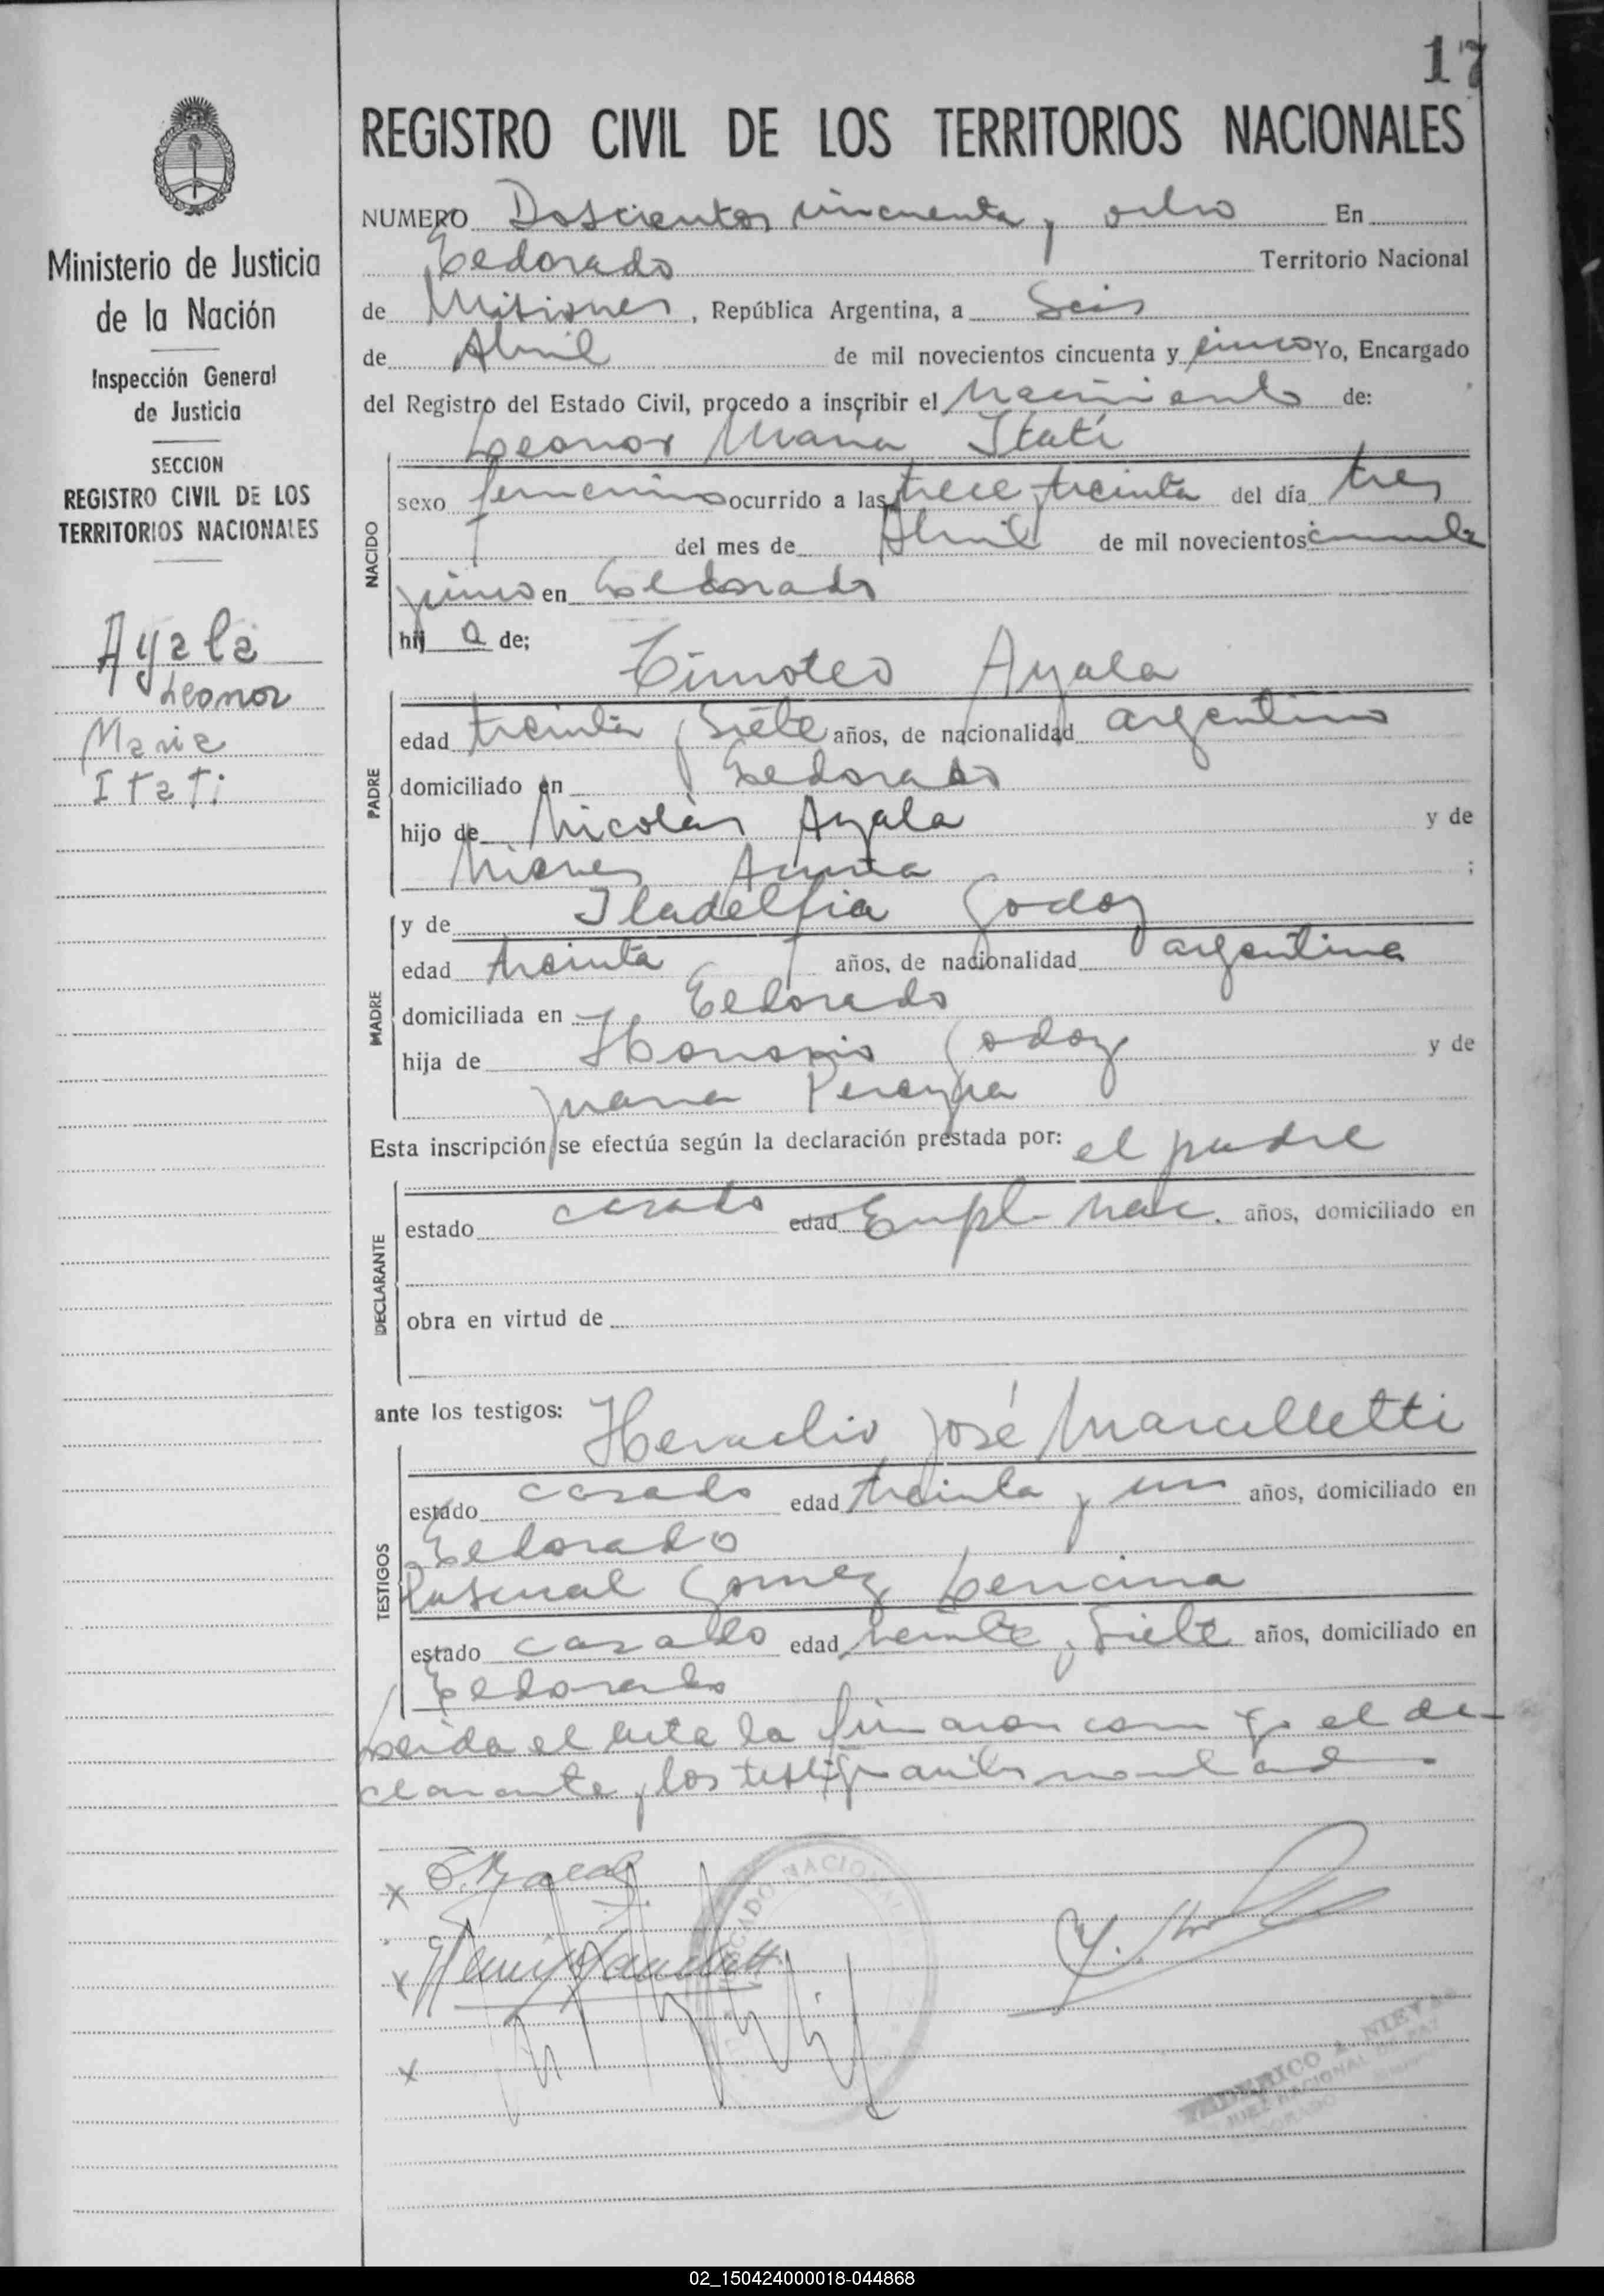 17
REGISTRO CIVIL DE LOS TERRITORIOS NACIONALES
Ministerio de Justicia
de la Nación
Inspección General
de Justicia
SECCION
REGISTRO CIVIL DE LOS
TERRITORIOS NACIONALES
Ayala
Leonor
Maria
Itati
NUMERO Doscientos cincuenta y ocho En
Eldorado Territorio Nacional
de Misiones, República Argentina, a Seis
de Abril de mil novecientos cincuenta y cinco Yo, Encargado
del Registro del Estado Civil, procedo a inscribir el Nacimiento de:
Leonor Maria Itatí
NACIDO
sexo femenino ocurrido a las trece y treinta del día tres
del mes de Abril de mil novecientos cincuenta
y cinco en Eldorado
hij a de;
Timoteo Ayala
PADRE
edad treinta y siete años, de nacionalidad argentino
domiciliado en Eldorado
hijo de Nicolás Ayala y de
Nieves Acuña ;
MADRE
y de Iladelfia Godoy
edad treinta años, de nacionalidad argentina
domiciliada en Eldorado
hija de Honorio Godoy y de
Juana Pereyra
Esta inscripción se efectúa según la declaración prestada por: el padre
DECLARANTE
estado casado edad Empl. Nac. años, domiciliado en
obra en virtud de
ante los testigos: Heraclio José Marcelletti
TESTIGOS
estado casado edad treinta y un años, domiciliado en
Eldorado
Pascual Gomez Lencina
estado casado edad veinte y siete años, domiciliado en
Eldorado
Leida el acta la firmaron con el de-
clarante y los testigos
NACIONAL
FEDERICO A. NIEV
JUEZ NACIONAL DE PAZ
ELDORADO
02_150424000018-044868